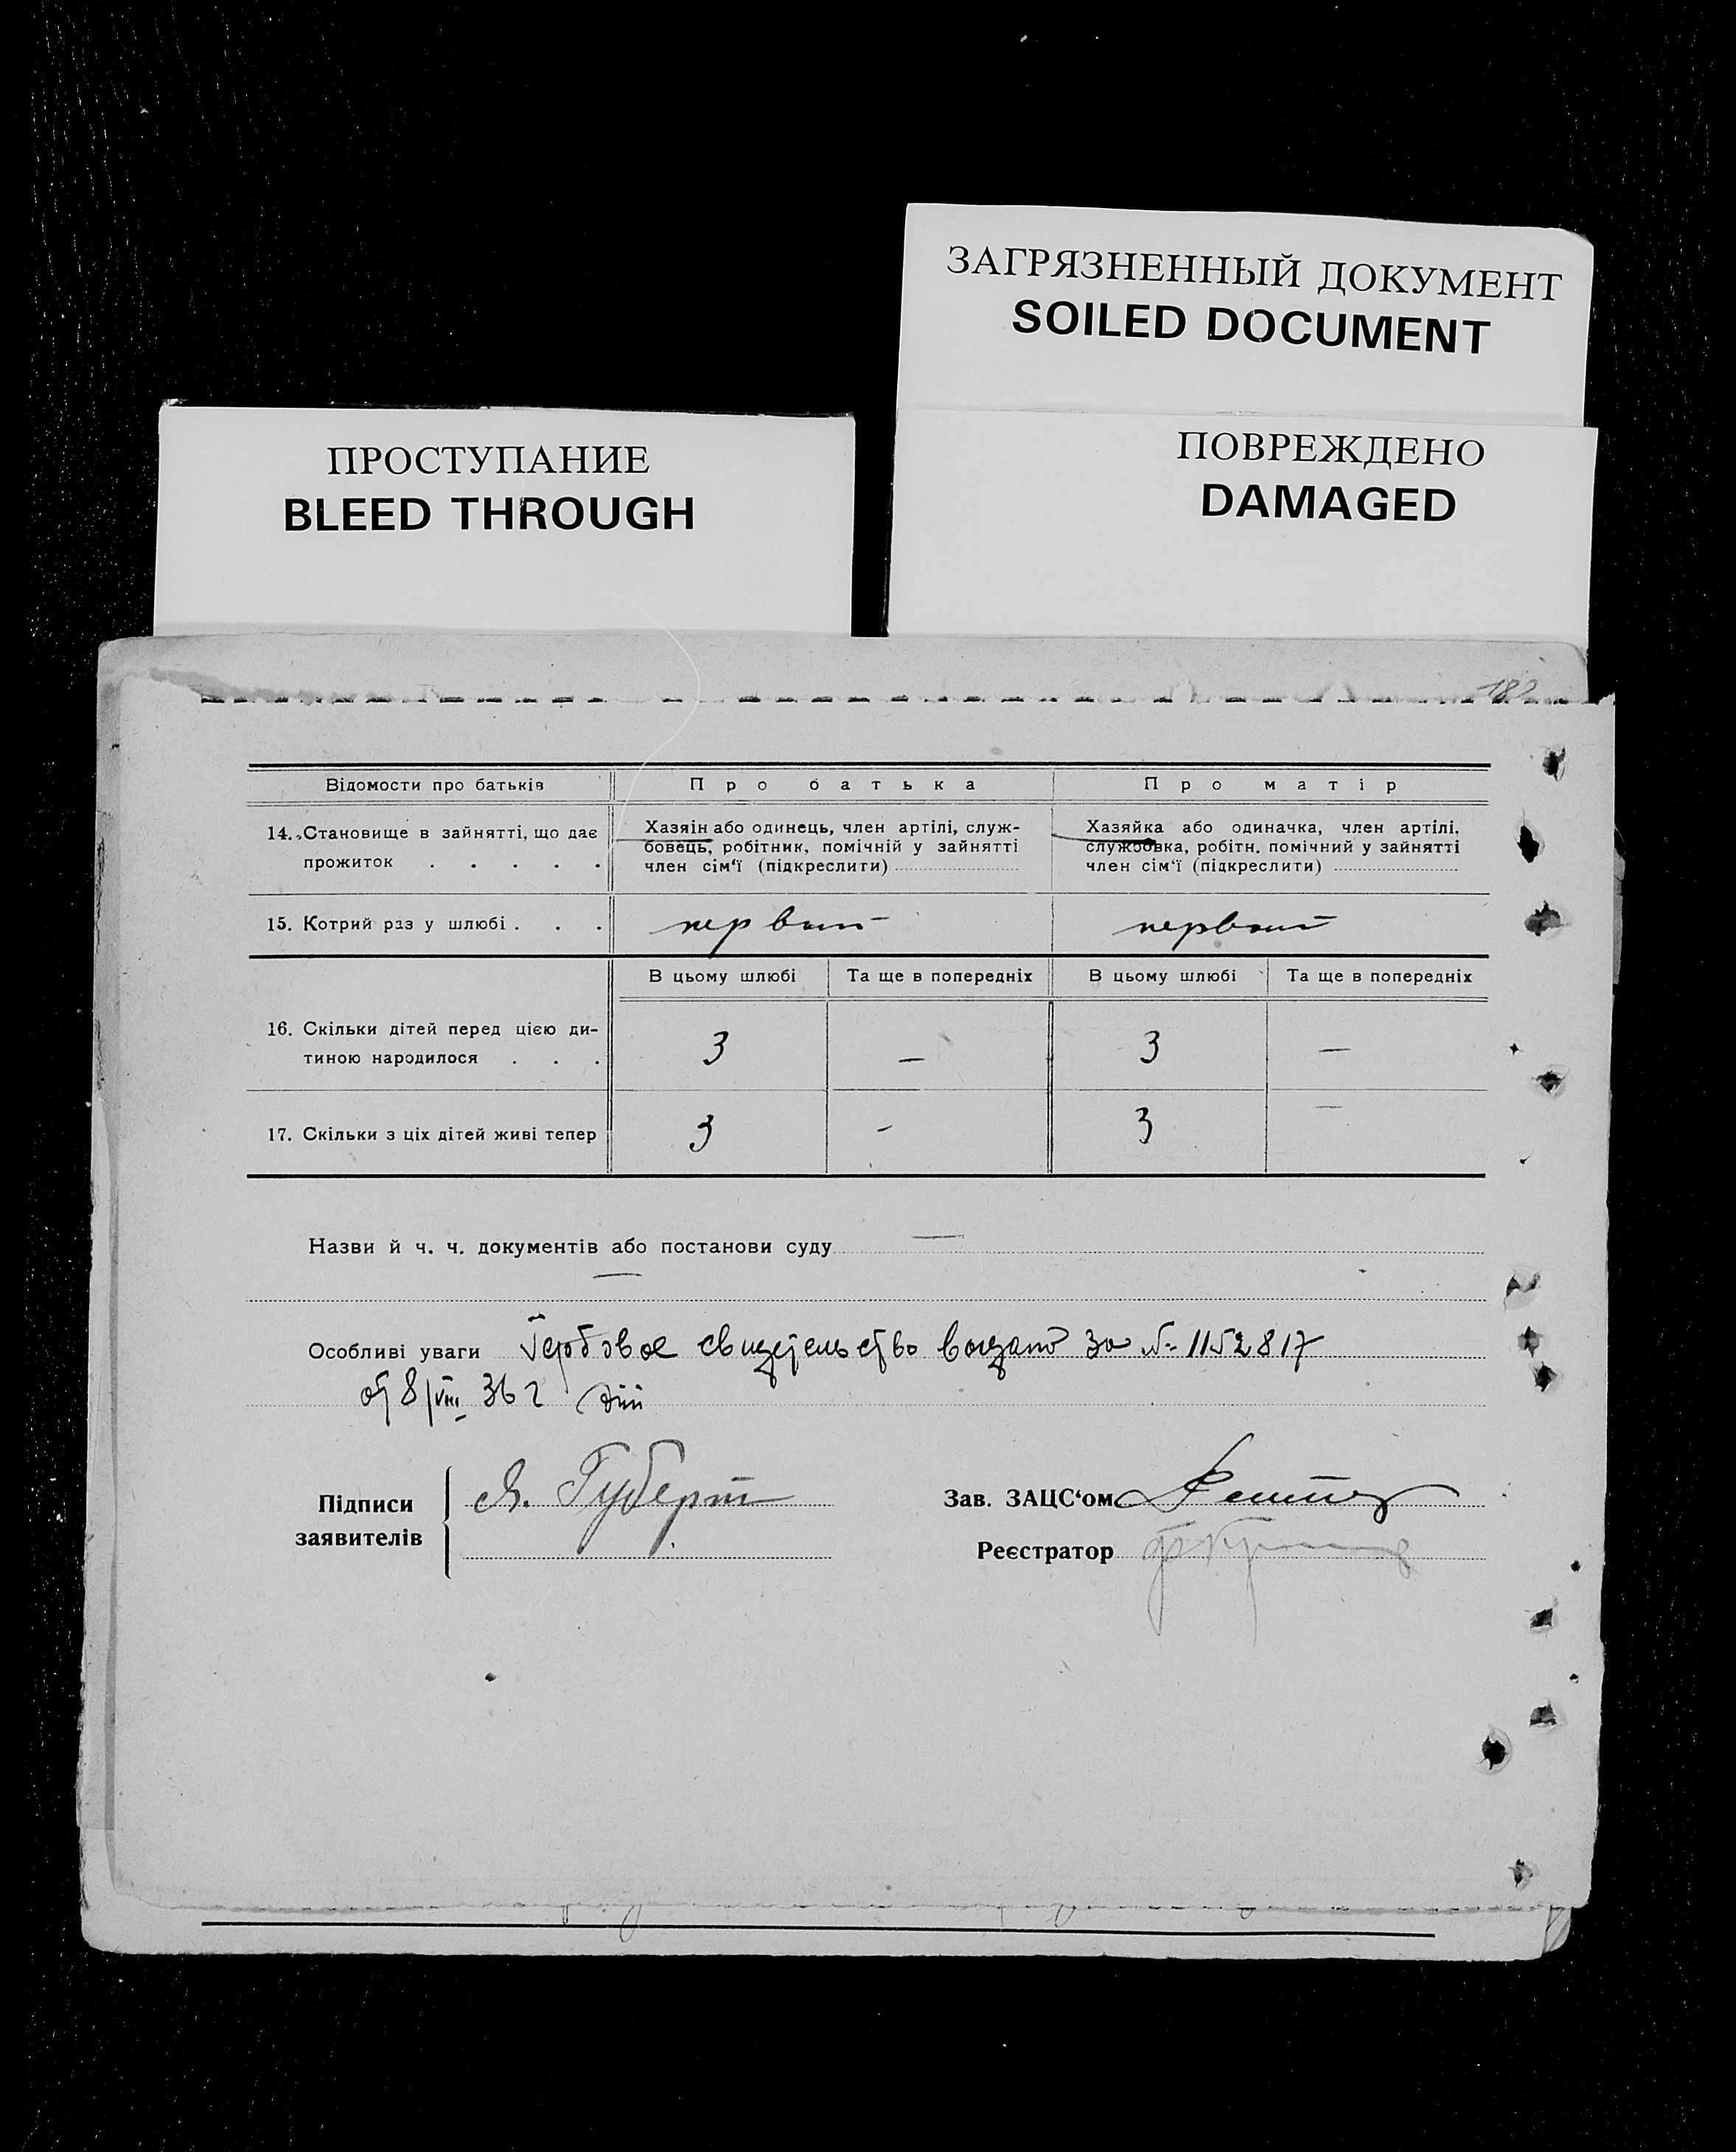 ЗАГРЯЗНЕННЫЙ ДОКУМЕНТ
SOILED DOCUMENT
ПРОСТУПАНИЕ
BLEED THROUGH
ПОВРЕЖДЕНО
DAMAGED
Відомости про батьків
Про батька
Про матір
14. Становище в зайнятті, що дає
прожиток . . . . .
Хазяін або одинець, член артілі, служ-
бовець, робітник, помічній у зайнятті
член сім‘ї (підкреслити)
Хазяйка або одиначка, член артілі,
службовка, робітн. помічний у зайнятті
член сім‘ї (підкреслити)
15. Котрий раз у шлюбі . . .
первый
первый
В цьому шлюбі
Та ще в попередніх
В цьому шлюбі
Та ще в попередніх
16. Скільки дітей перед цією ди-
тиною народилося . . .
3
—
3
—
17. Скільки з ціх дітей живі тепер
3
-
3
—
Назви й ч. ч. документів або постанови суду —
—
Особливі уваги Гербовое свидетельство выдано за № 1152817
от 8/VIII 36 г
Підписи
заявителів
Я. Губерт
Зав. ЗАЦС‘ом
Реєстратор